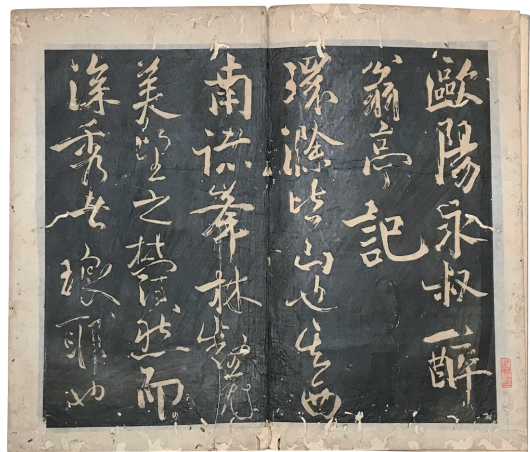 歐陽永叔醉
翁亭記
環滁皆山也其西
南諸峯林壑尤
美望之然而
深秀者琅耶也